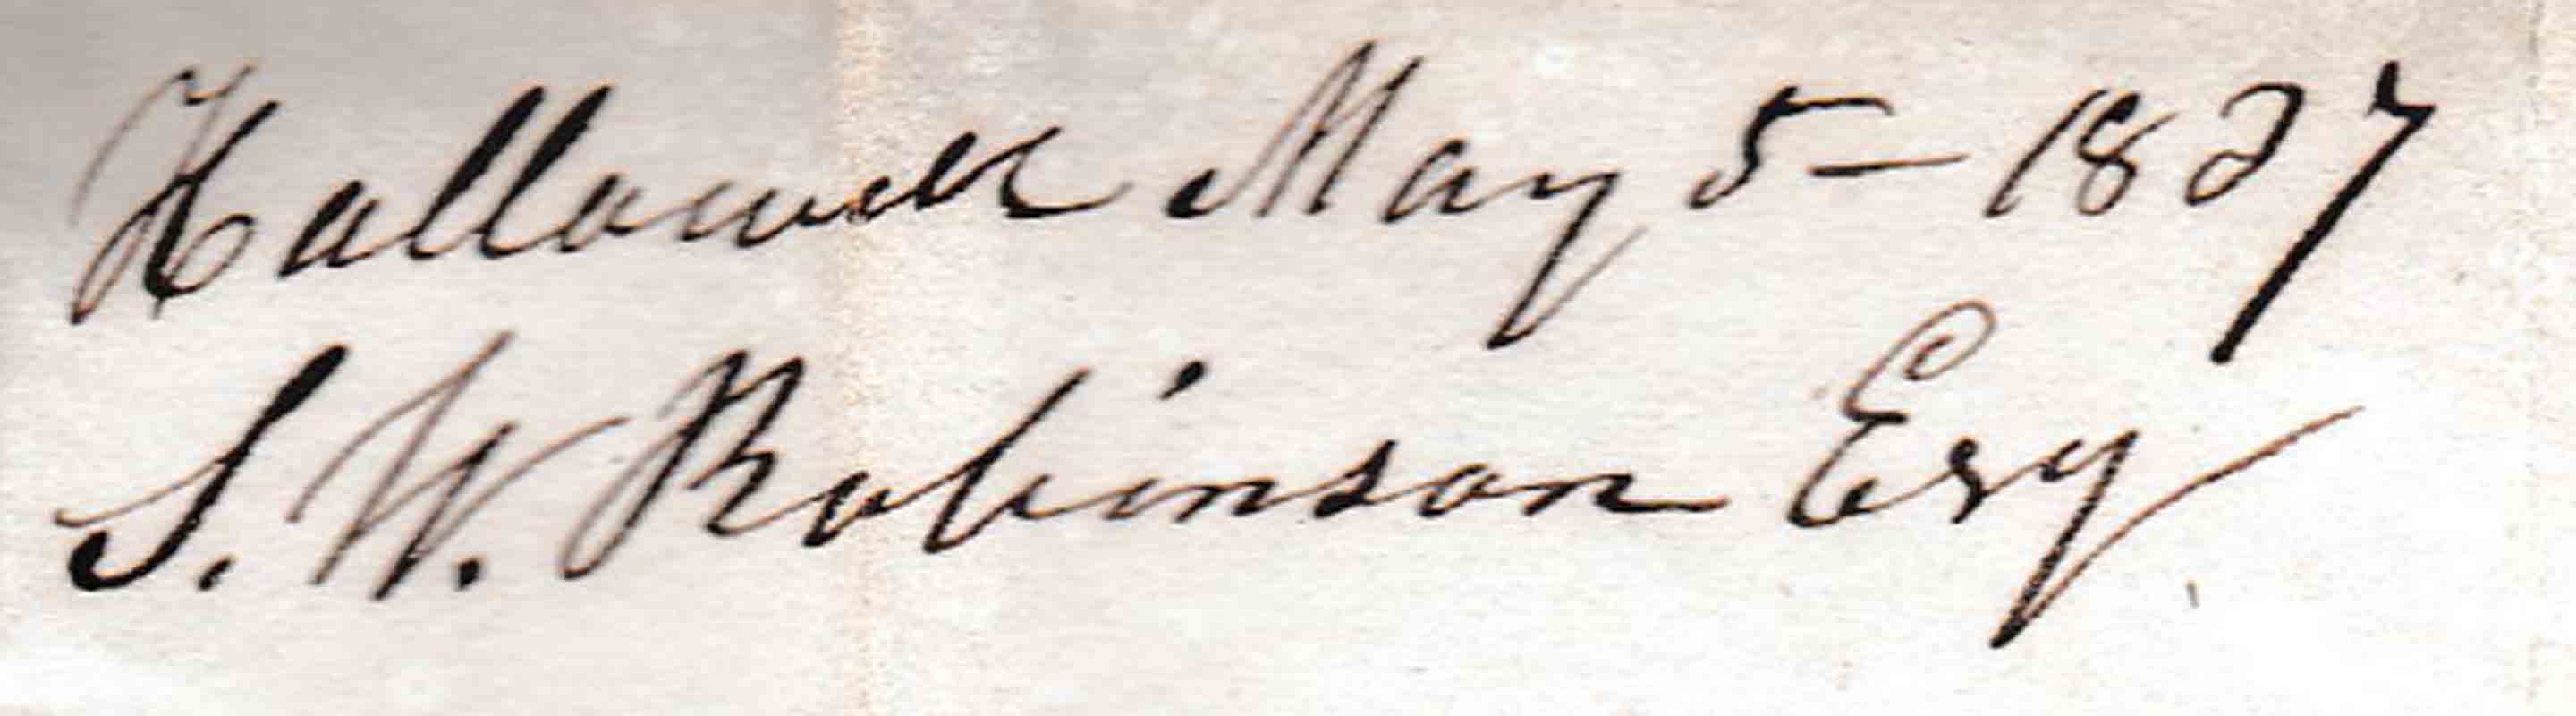 Hallowell May 5 – 1837
S. W. Robinson Esq